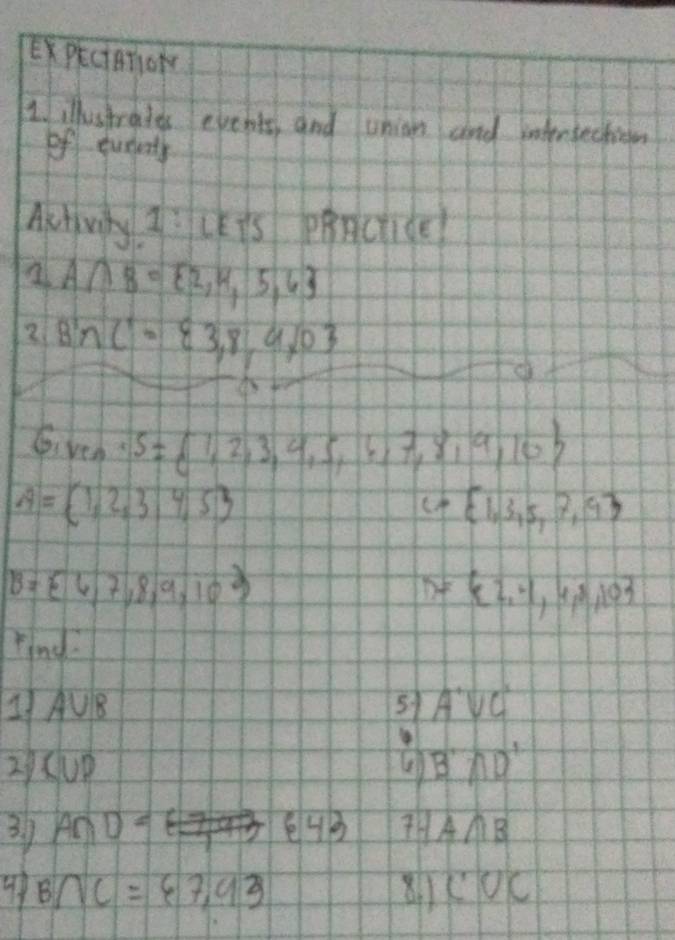 EXPECTATION
1. illustrates events, and union and intersection
of events
Activity 1: LET'S PRACTICE!
1. A∩B = {2,4, 5,6}
2. B'∩C' = {3,8, 9,10}
Given: S={1,2,3,4,5, 6,7,8,9,10}
A = {1,2,3,4,5} C= {1,3,5,7,9}
B= {6,7,8,9,10} D= {2,4,6,8,10}
Find:
1) A∪B 5) A'∪C'
2) C∪D 6) B'∩D'
3.) A∩D = {4} 7.) A∩B
4) B∩C = {7,9} 8.) C'∪C